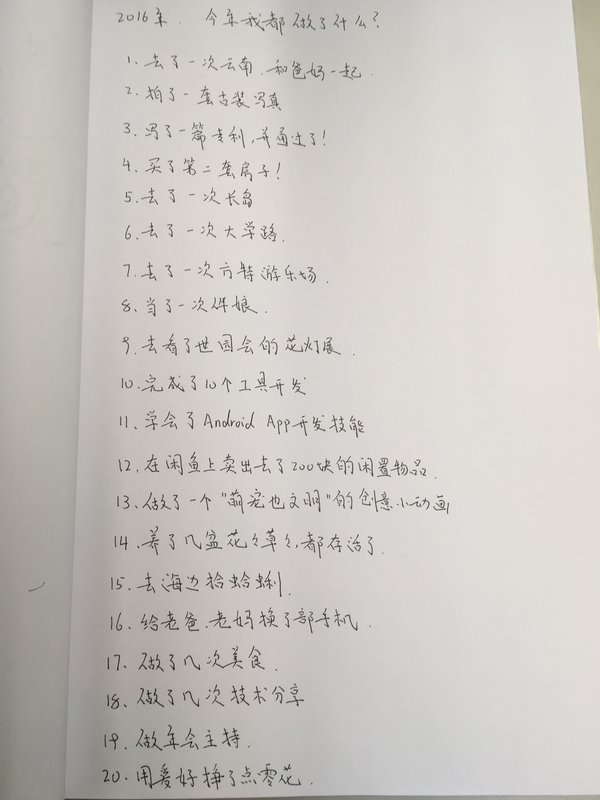 2016年. 今年我都做了什么?
1. 去了一次云南, 和爸妈一起.
2. 拍了一套古装写真
3. 写了一篇专利, 并通过了!
4. 买了第二套房子!
5. 去了一次长岛
6. 去了一次大学路.
7. 去了一次方特游乐场.
8. 当了一次伴娘.
9. 去看了世园会的花灯展.
10. 完成了10个工具开发
11. 学会了Android App开发技能
12. 在闲鱼上卖出去了200块的闲置物品.
13. 做了一个"萌宠也文明"的创意小动画
14. 养了几盆花々草々, 都存活了.
15. 去海边拾蛤蜊.
16. 给老爸、老妈换了部手机.
17. 做了几次美食.
18. 做了几次技术分享
19. 做年会主持.
20. 用爱好挣了点零花.